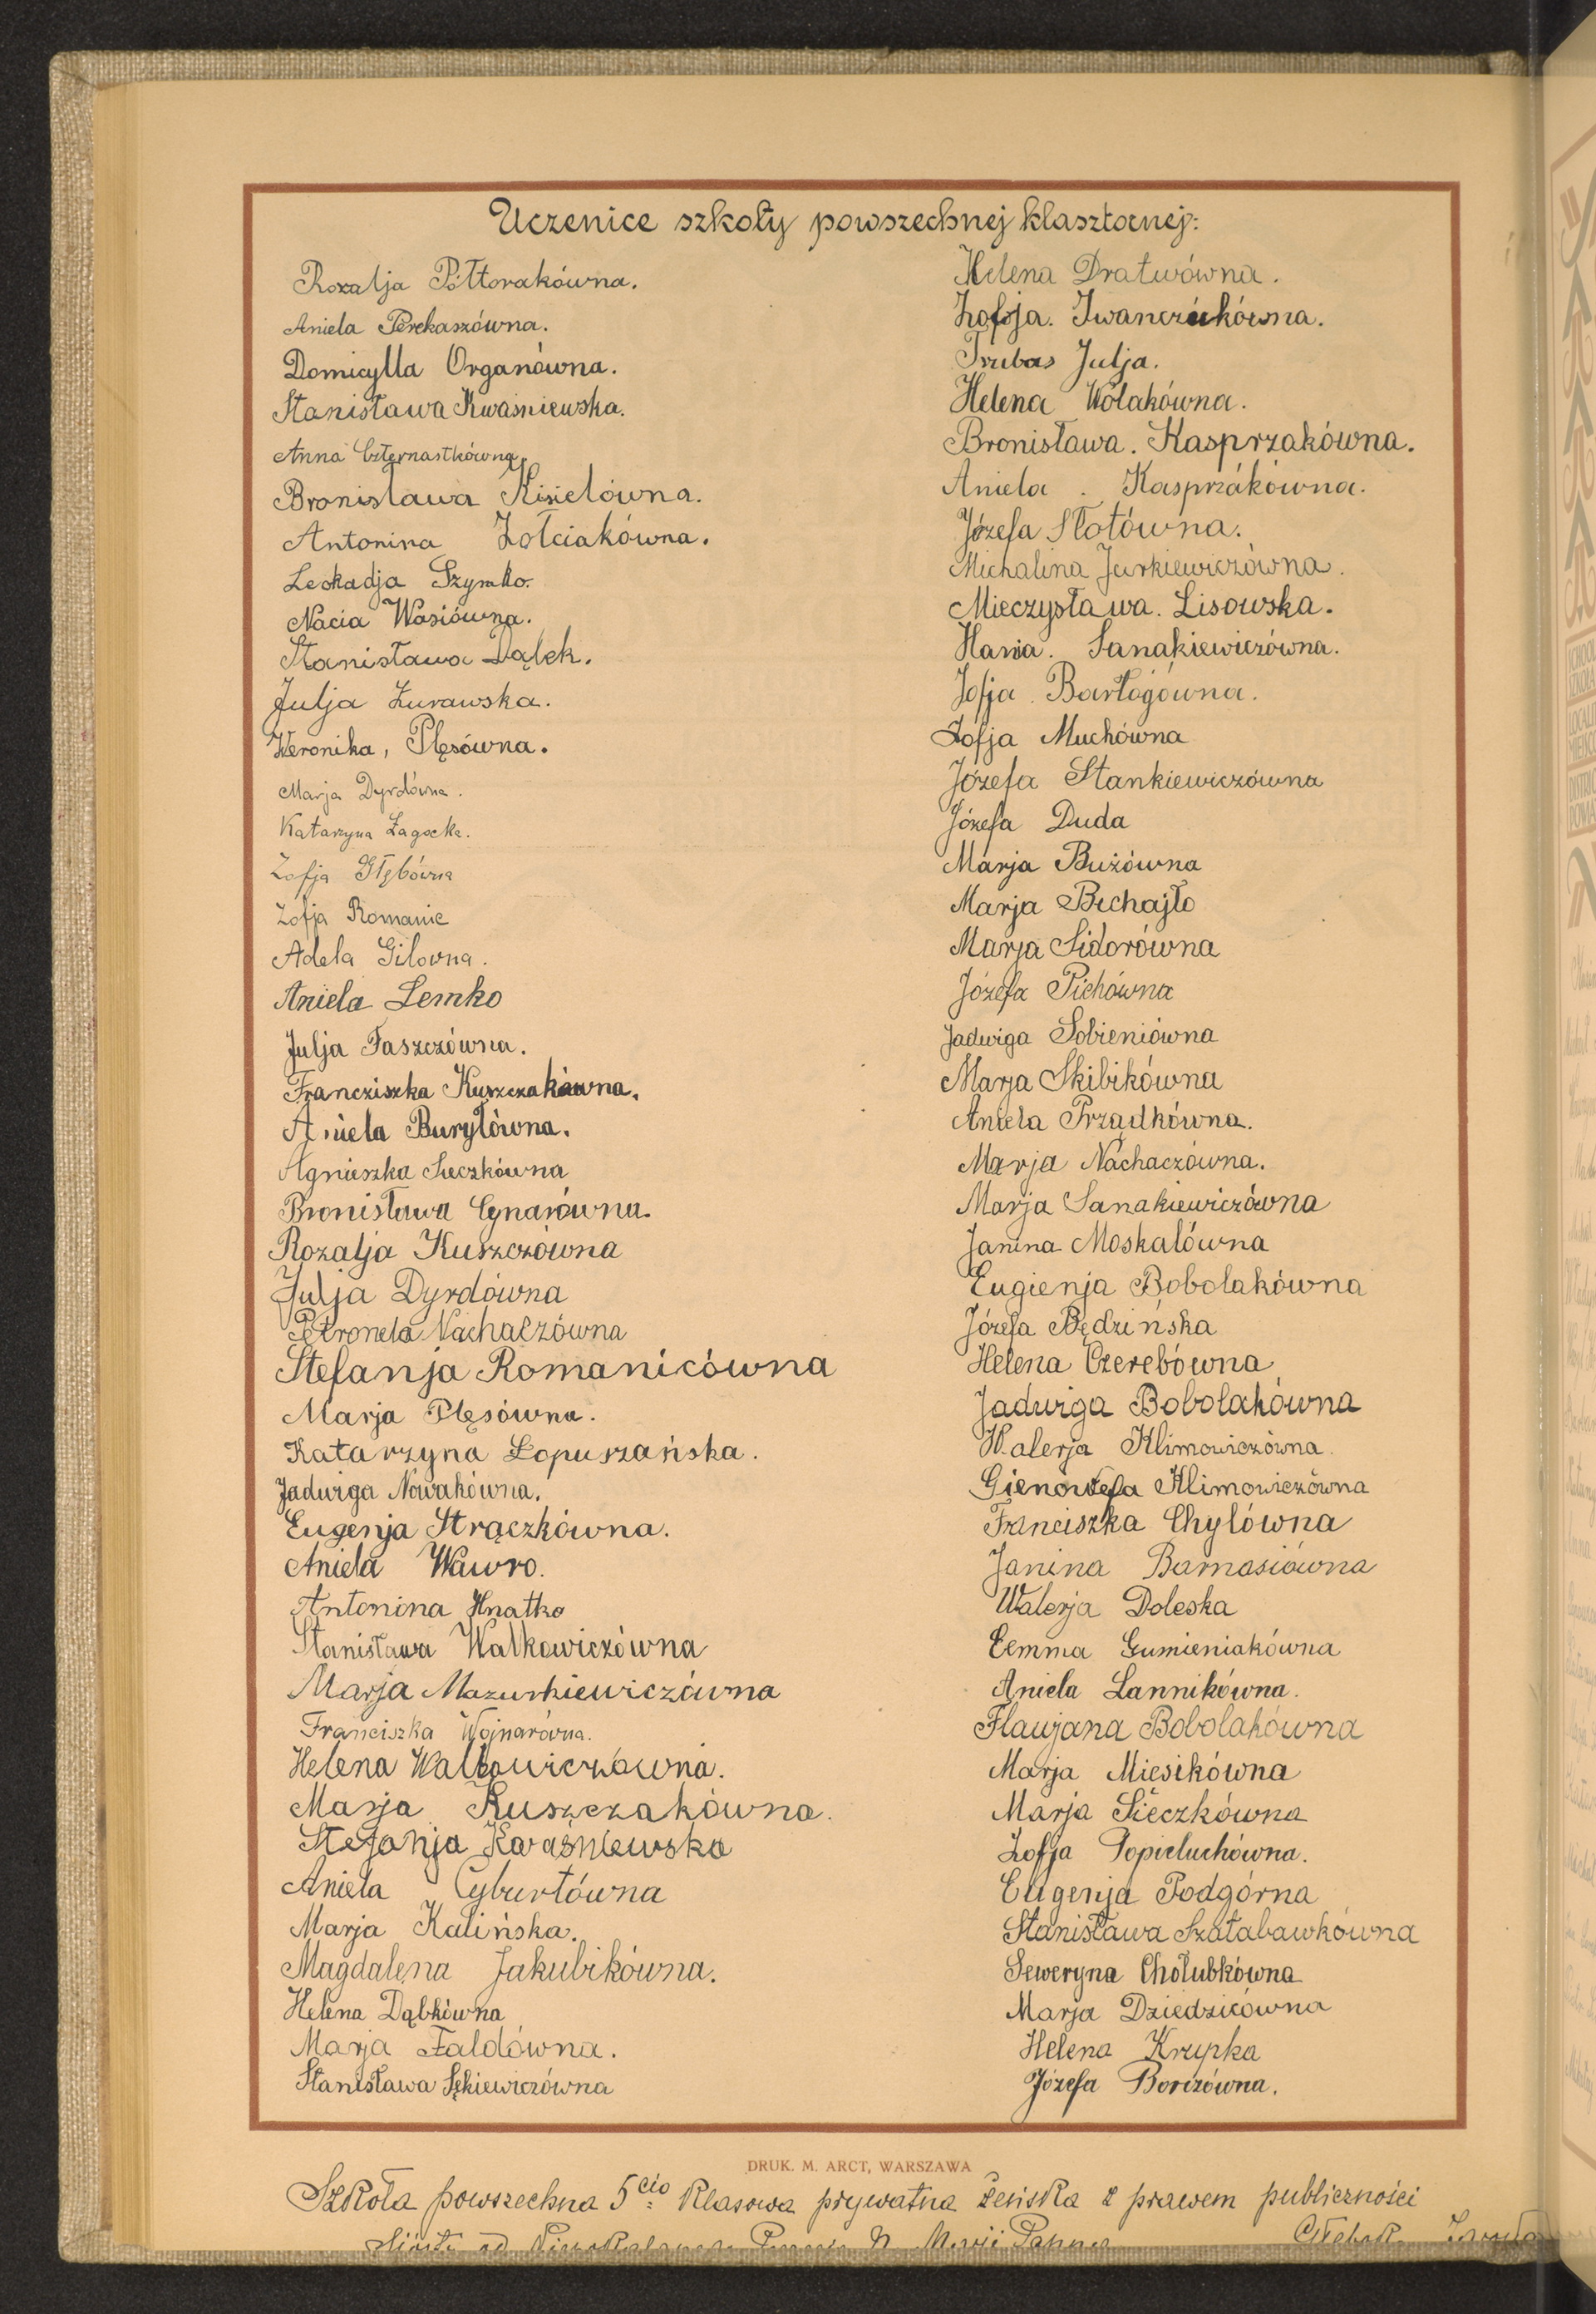 Uczenice szkoły powszechnej klasztornej:
Rozalja Półtorakówna.
Aniela Perekaszówna.
Domicylla Organówna.
Stanisława Kwaśniewska.
Anna Czternastkówna.
Bronisława Kisielówna.
Antonina Żółciakówna.
Leokadja Szymko.
Nacia Wasiówna.
Stanisława Dąlek.
Julja Żurawska.
Weronika, Plęsówna.
Marja Dyrdówna.
Katarzyna Żagocka.
Zofja Głębówna
Zofja Romanic
Adela Gilowna.
Aniela Lemko
Julja Faszczówna.
Francziszka Kuszczakówna.
Aniela Buryłówna.
Agnieszka Sieczkówna
Bronisława Cynarówna.
Rozalja Kuszczówna
Julja Dyrdówna
Petronela Nachaczówna
Stefanja Romanicówna
Marja Plęsówna.
Katarzyna Łopuszańska.
Jadwiga Nowakówna.
Eugenja Strączkówna.
Aniela Wawro.
Antonina Hnatko
Stanisława Walkowiczówna
Marja Mazurkiewiczówna
Franciszka Wojnarówna.
Helena Walkowiczówna.
Marja Kuszczakówna.
Stefanja Kwaśniewska
Aniela Cyburtówna
Marja Kalińska.
Magdalena Jakubikówna.
Helena Dąbkówna
Marja Fałdówna.
Stanisława Sękiewiczówna
Helena Dratwówna.
Zofja. Iwanczukówna.
Trubas Julja.
Helena Wolakówna.
Bronisława. Kasprzakówna.
Aniela. Kasprzákówna.
Józefa Słotówna.
Michalina Jurkiewiczówna.
Mieczysława. Lisowska.
Hania. Sanakiewiczówna.
Zofja. Bartogówna.
Zofja Muchówna
Józefa Stankiewiczówna
Józefa Duda
Marja Bużówna
Marja Bechajło
Marja Sidorówna
Józefa Pichówna
Jadwiga Sobieniówna
Marja Skibikówna
Aniela Prządkówna.
Marja Nachaczówna.
Marja Sanakiewiczówna
Janina Moskalówna
Eugienja Bobolakówna
Józefa Będzińska
Helena Czerebówna
Jadwiga Bobolakówna
Walerja Klimowiczówna.
Gienowefa Klimowiczówna
Franciszka Chylówna
Janina Barnasiówna
Walerja Doleska
Eemma Gumieniakówna
Aniela Lannikówna.
Flawjana Bobolakówna
Marja Miesikówna
Marja Sieczkówna
Zofja Popieluchówna.
Eugenja Podgórna
Stanisława Szałabawkówna
Seweryna Chołubkówna
Marja Dziedzicówna
Helena Krupka
Józefa Borizówna.
DRUK. M. ARCT, WARSZAWA
Szkoła powszechna 5cio klasowa prywatna żeńska z prawem publiczności